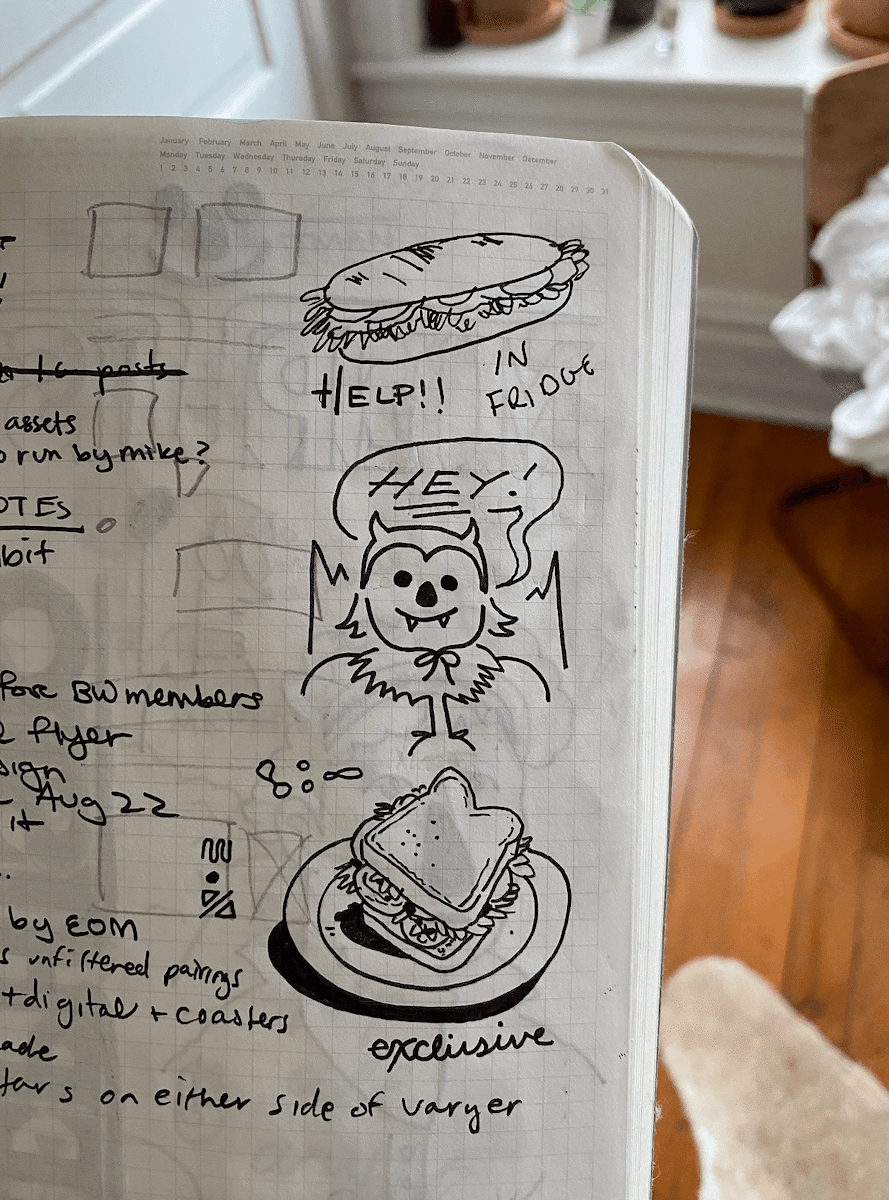 January February March April May June July August September October November December
Monday Tuesday Wednesday Thursday Friday Saturday Sunday
1 2 3 4 5 6 7 8 9 10 11 12 13 14 15 16 17 18 19 20 21 22 23 24 25 26 27 28 29 30 31
posts
HELP!! IN FRIDGE
assets
run by mike?
HEY!
OTES
bit
BW members
flyer
sign
Aug 22
it
by EOM
s unfiltered pairings
+digital + coasters
exclusive
ade
tars on either side of varyer